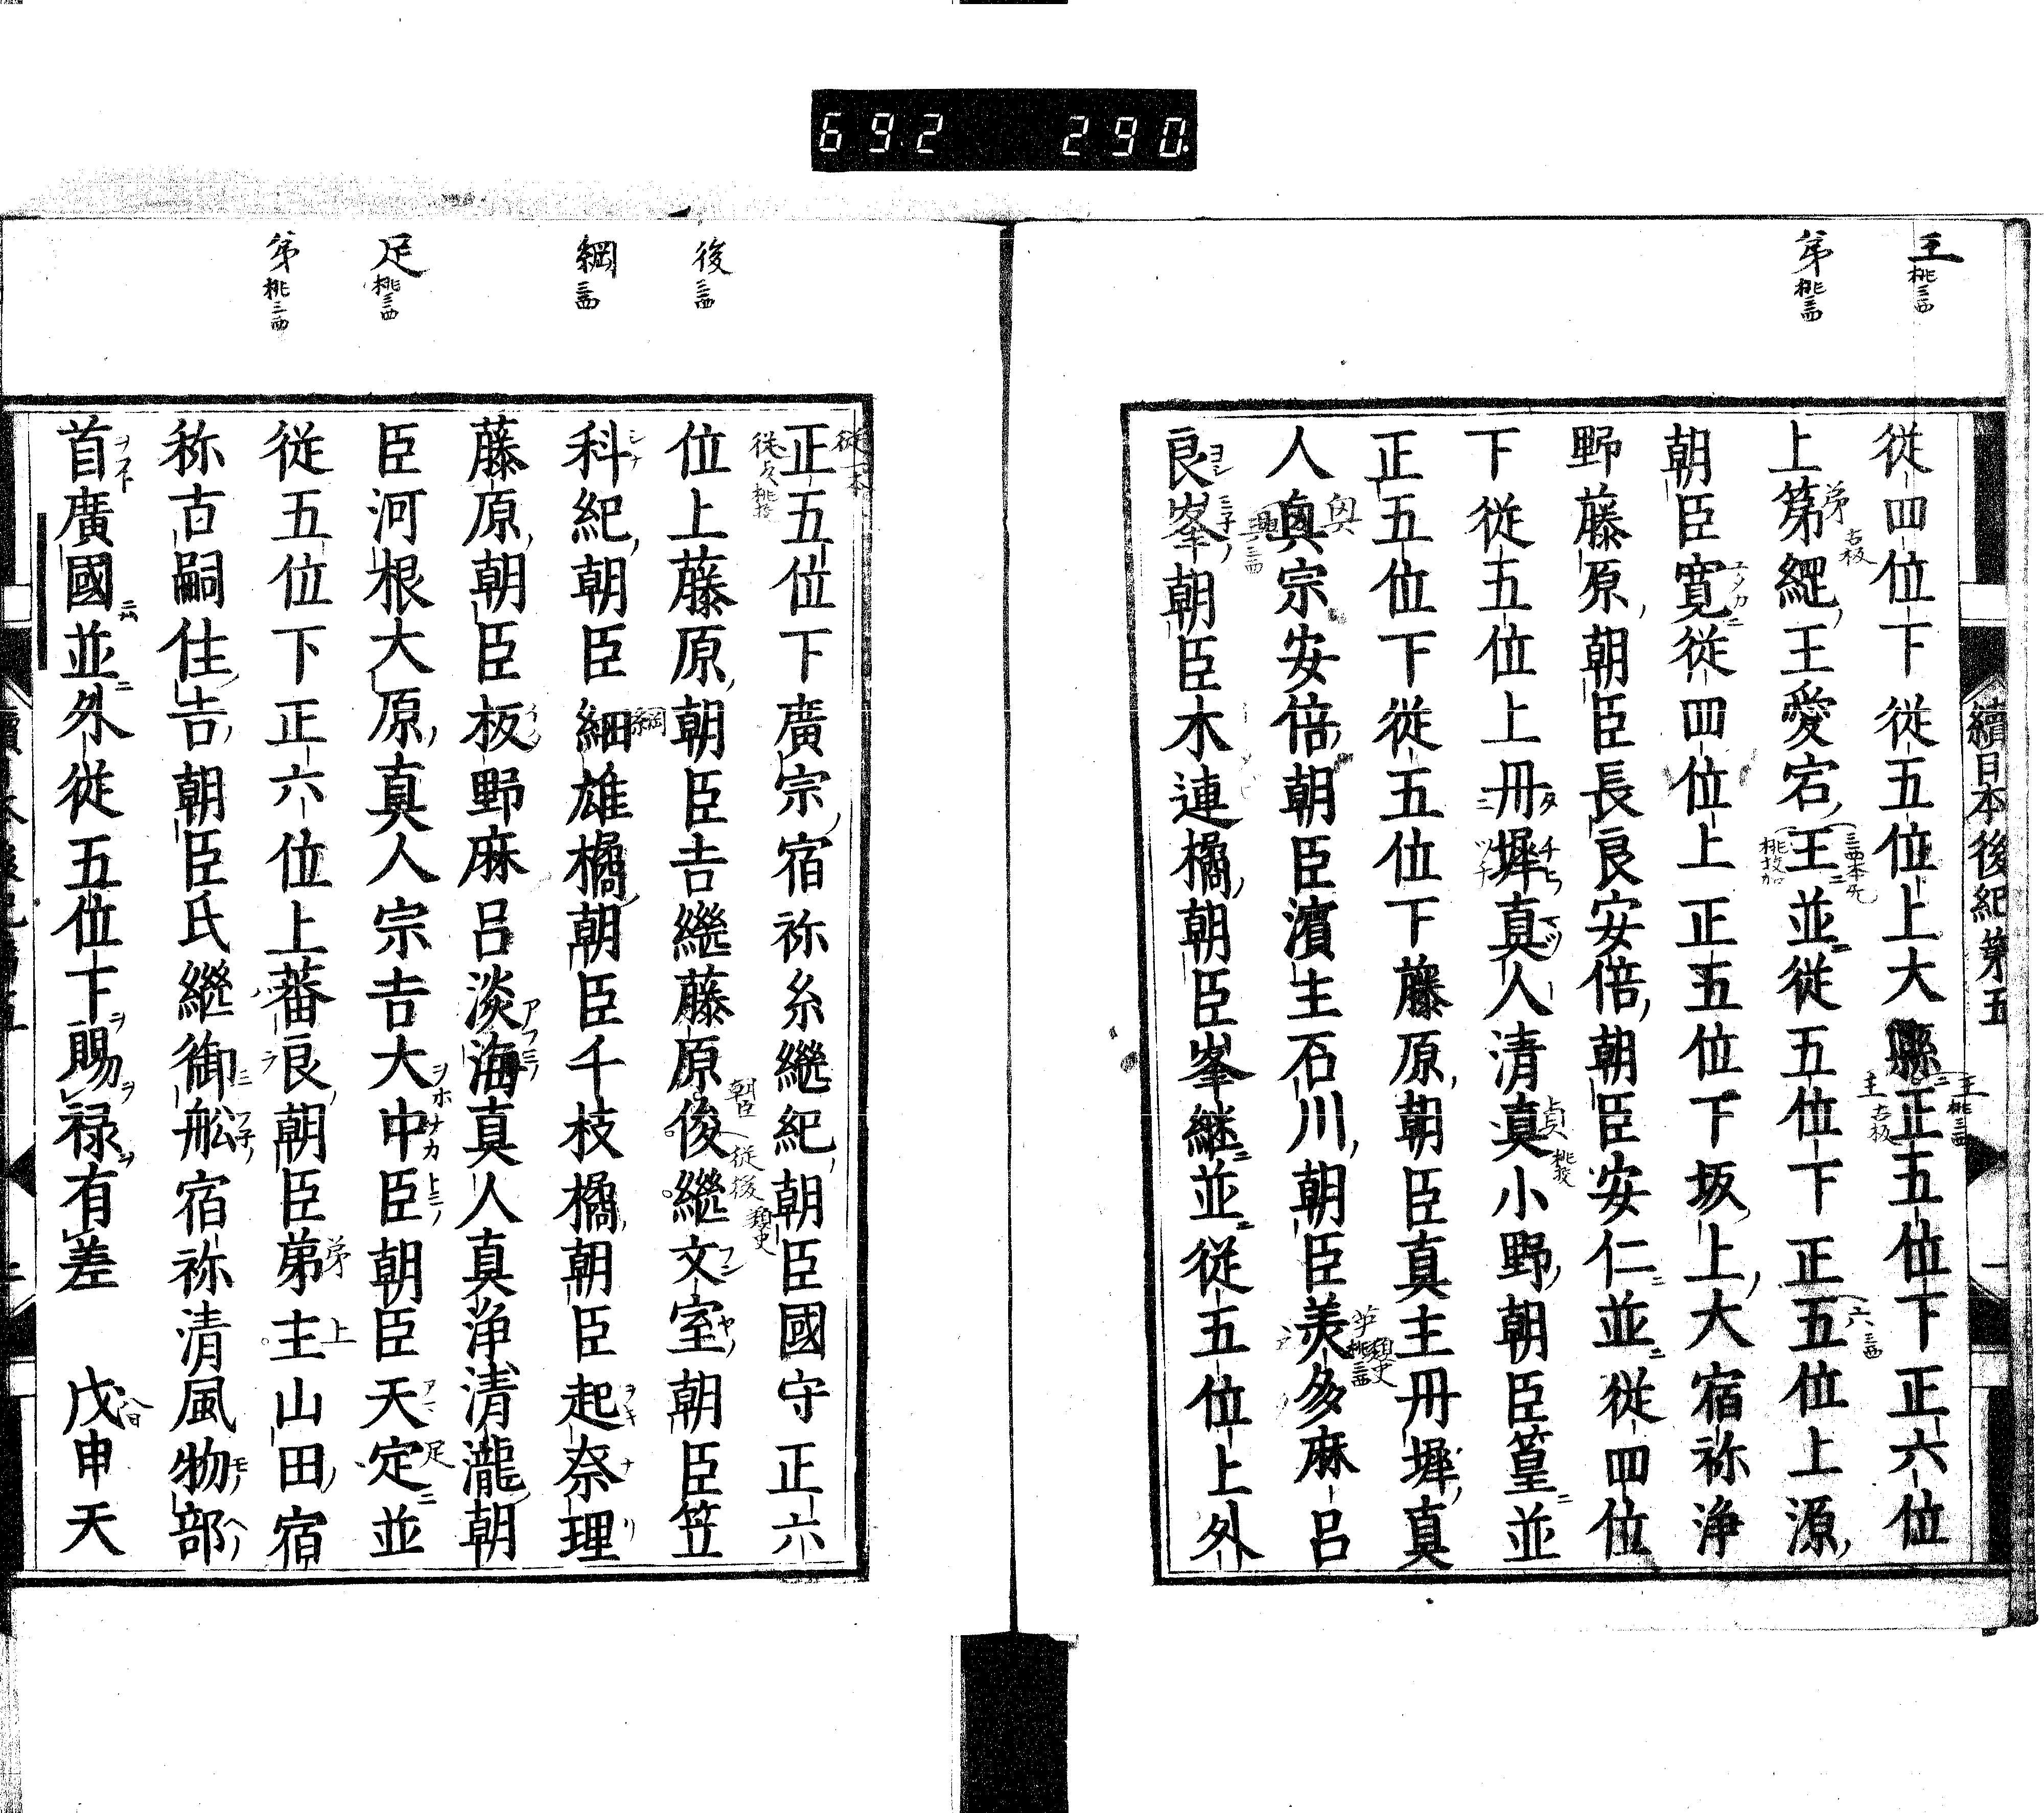 692 290
續日本後紀第五 一
王 桃三西
第 桃三西
從四位下從五位上大縣正五位下正六位
上第緦王愛宕王並從五位下正五位上源
朝臣寛從四位上正五位下坂上大宿祢浄
野藤原朝臣長良安倍朝臣安仁並從四位
下從五位上丹墀真人清真小野朝臣篁並
正五位下從五位下藤原朝臣真主丹墀真
人真宗安倍朝臣濱主石川朝臣美多麻呂
良峯朝臣木連橘朝臣峯継並從五位上外
後 三西
綱 三西
足 桃三西
第 桃三西
正五位下廣宗宿祢糸繼紀朝臣國守正六
位上藤原朝臣吉繼藤原俊繼文室朝臣笠
科紀朝臣細雄橘朝臣千枝橘朝臣起奈理
藤原朝臣板野麻呂淡海真人真浄清瀧朝
臣河根大原真人宗吉大中臣朝臣天定並
從五位下正六位上蕃良朝臣弟主山田宿
祢古嗣住吉朝臣氏繼御舩宿祢清風物部
首廣國並外從五位下賜禄有差 戊申天